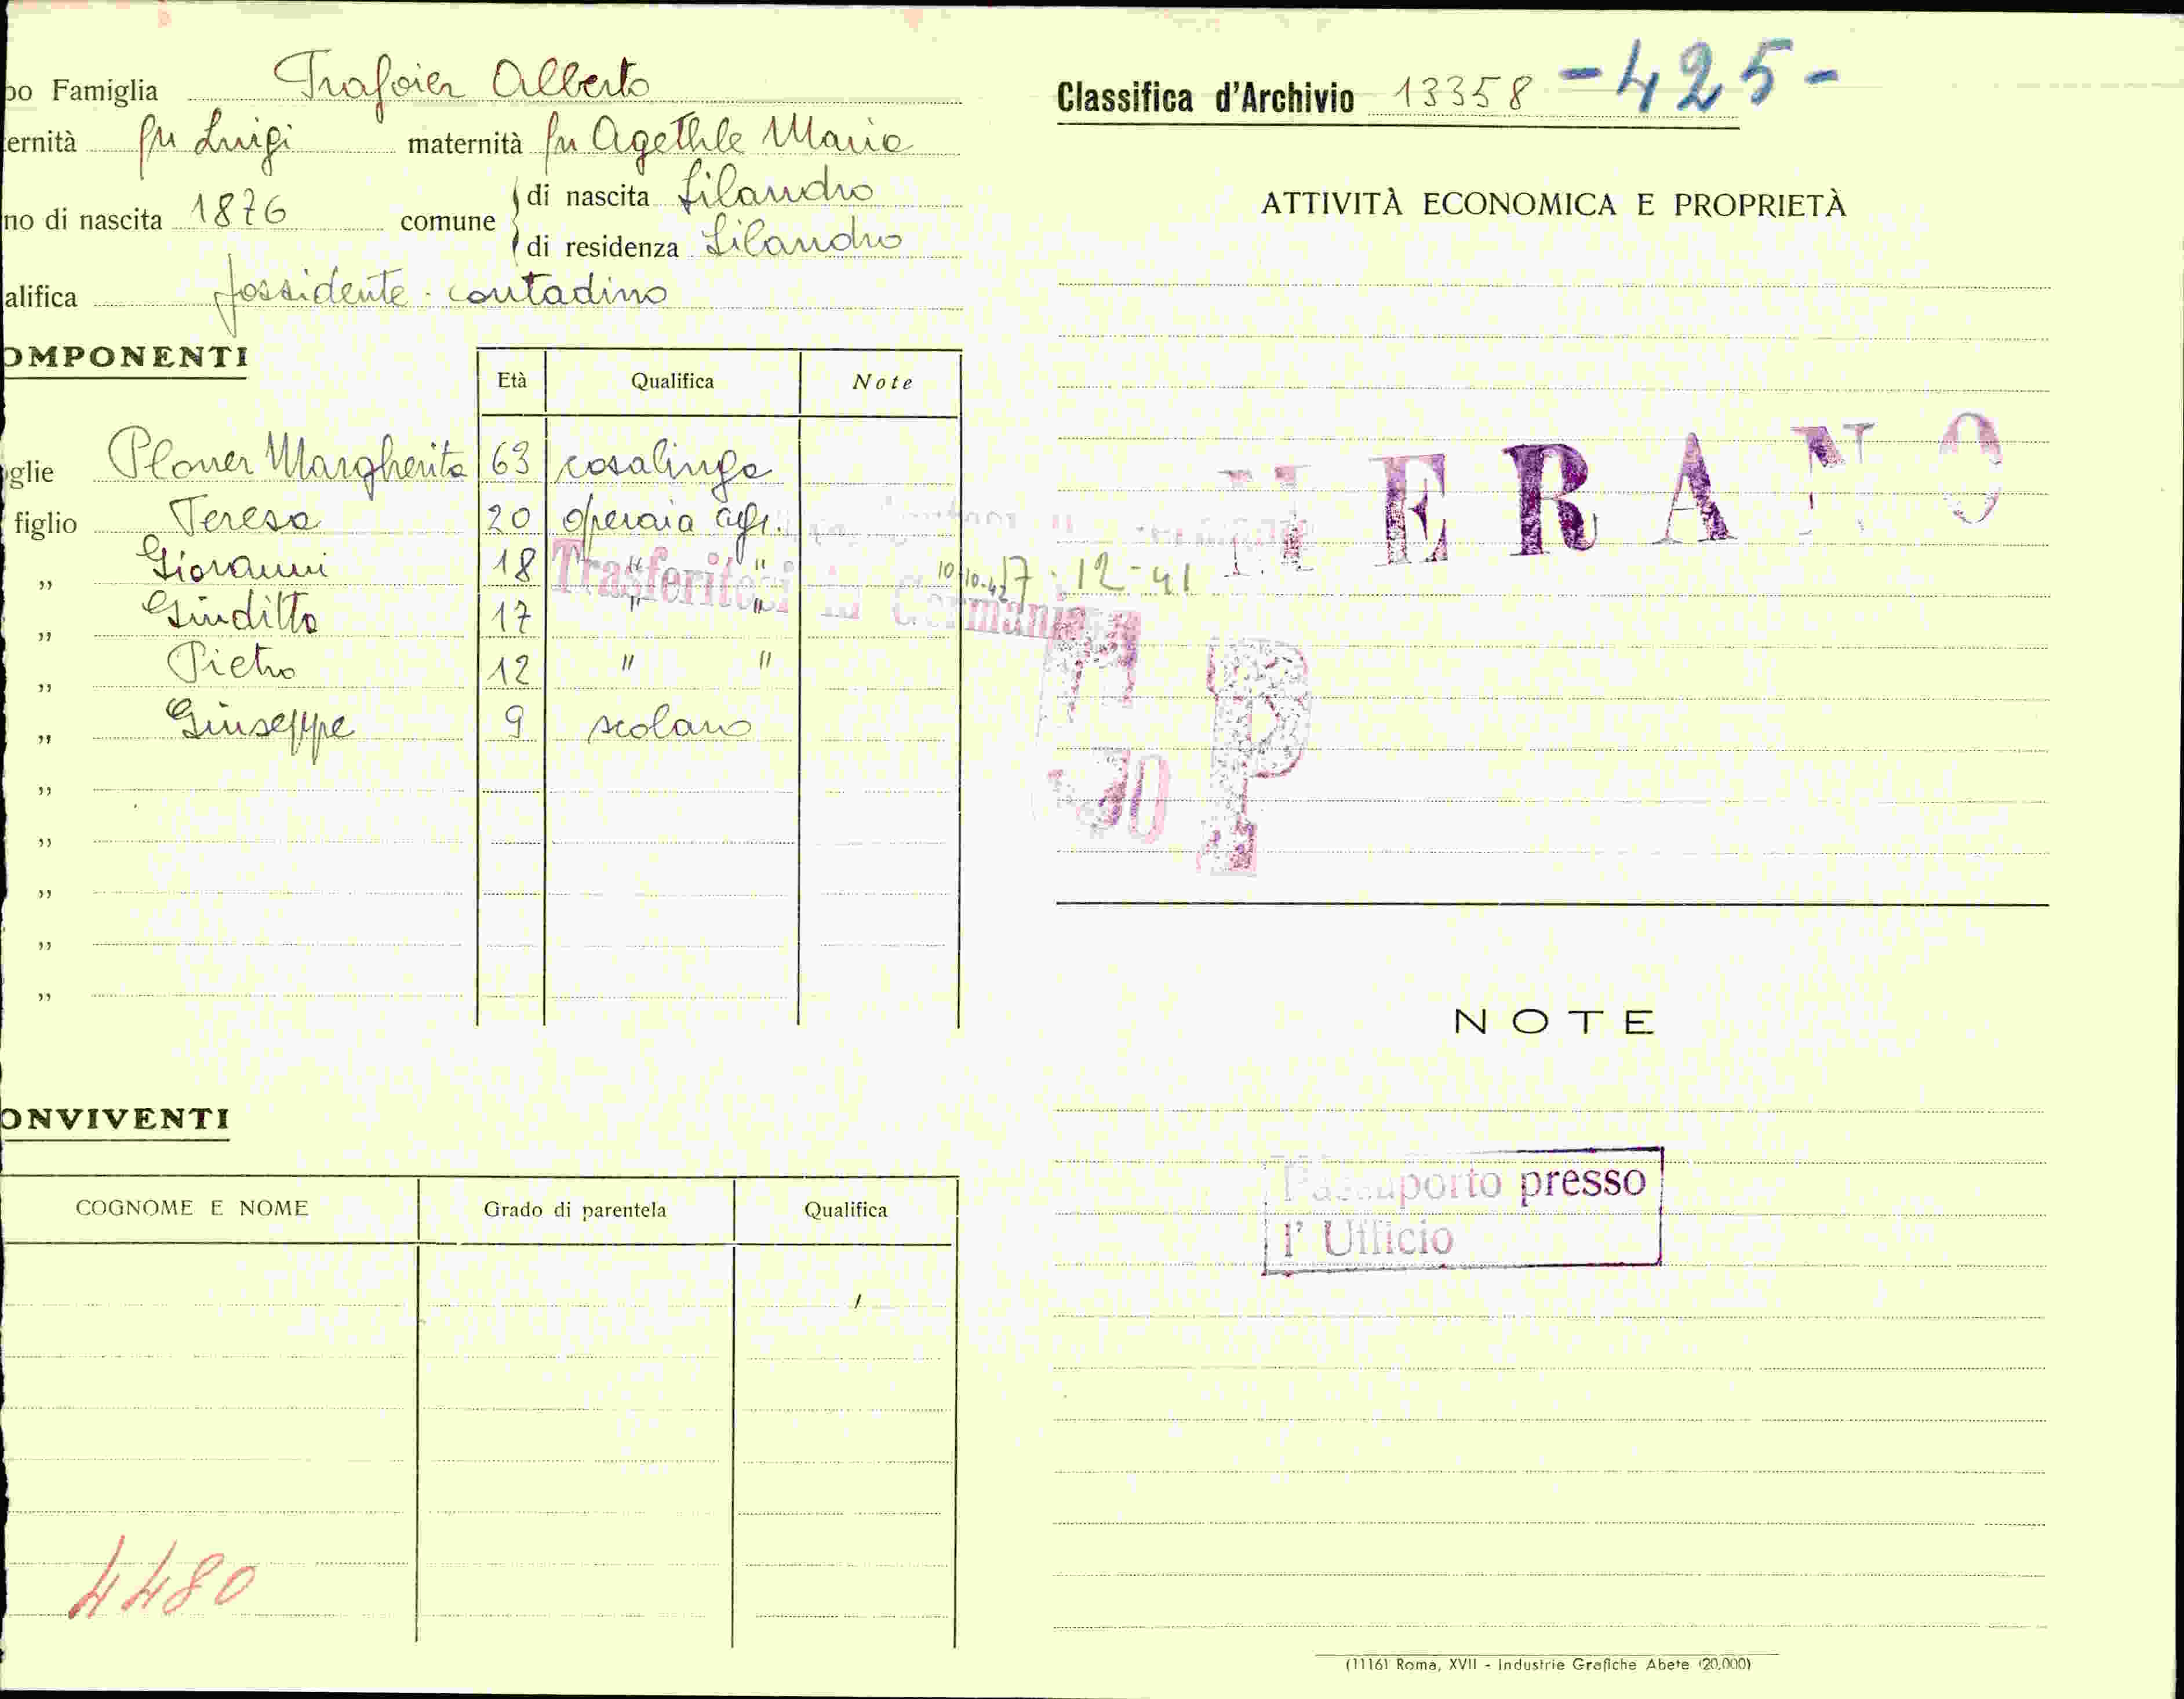 po Famiglia Trafoier Alberto
ernità fu Luigi maternità fu Agethle Maria
no di nascita 1876 comune di nascita Silandro
di residenza Silandro
alifica possidente - contadino
OMPONENTI
Età Qualifica Note
glie Ploner Margherita 63 casalinga
figlio Teresa 20 operaia agr.
„ Giovanni 18 " "
„ Giuditta 17 " "
„ Pietro 12 " "
„ Giuseppe 9 scolaro
„
„
„
„
„
Trasferitosi in Germania
10/10-42 7-12-41
ONVIVENTI
COGNOME E NOME Grado di parentela Qualifica
4480
Classifica d'Archivio 13358 -425-
ATTIVITÀ ECONOMICA E PROPRIETÀ
MERANO
P
NOTE
Passaporto presso
l' Ufficio
(11161 Roma, XVII - Industrie Grafiche Abete (20.000)